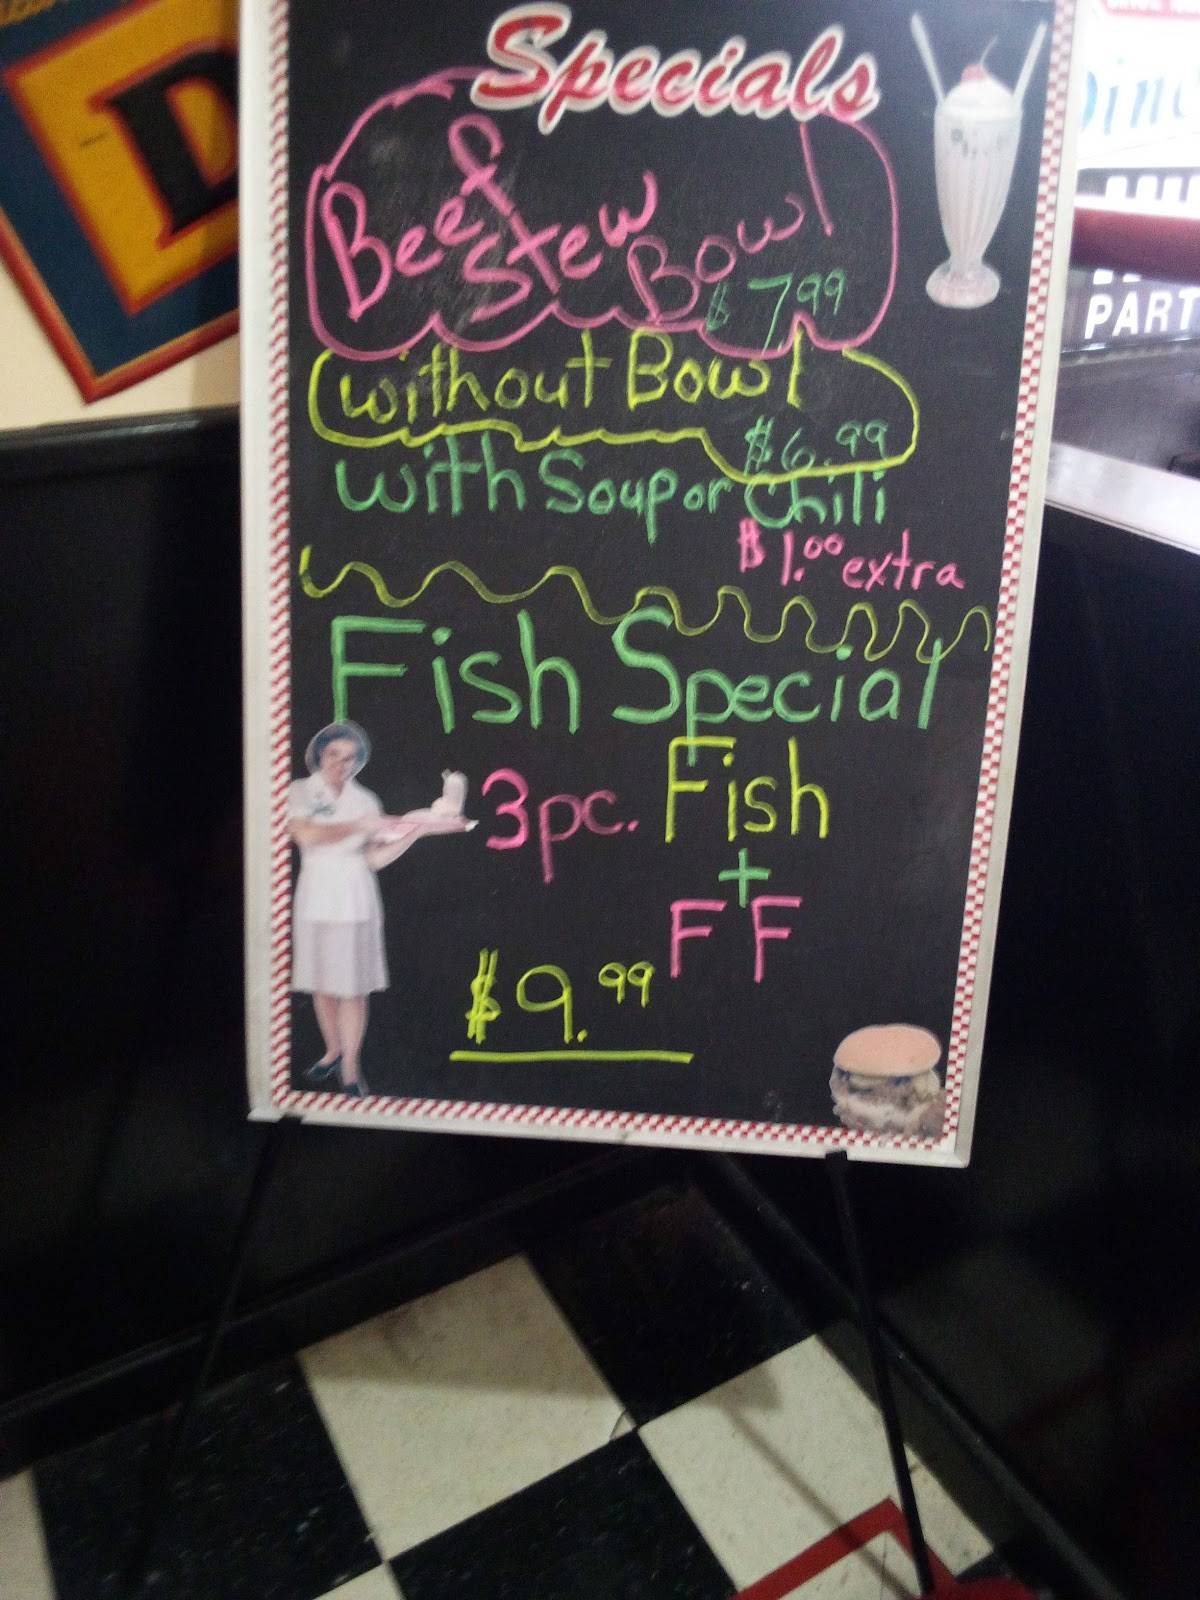 Specials
Beef
Stew
Bowl
$7.99
without Bowl
$6.99
with Soup or Chili
$1.00 extra
Fish Special
3pc. Fish
+
FF
$9.99
D
PART